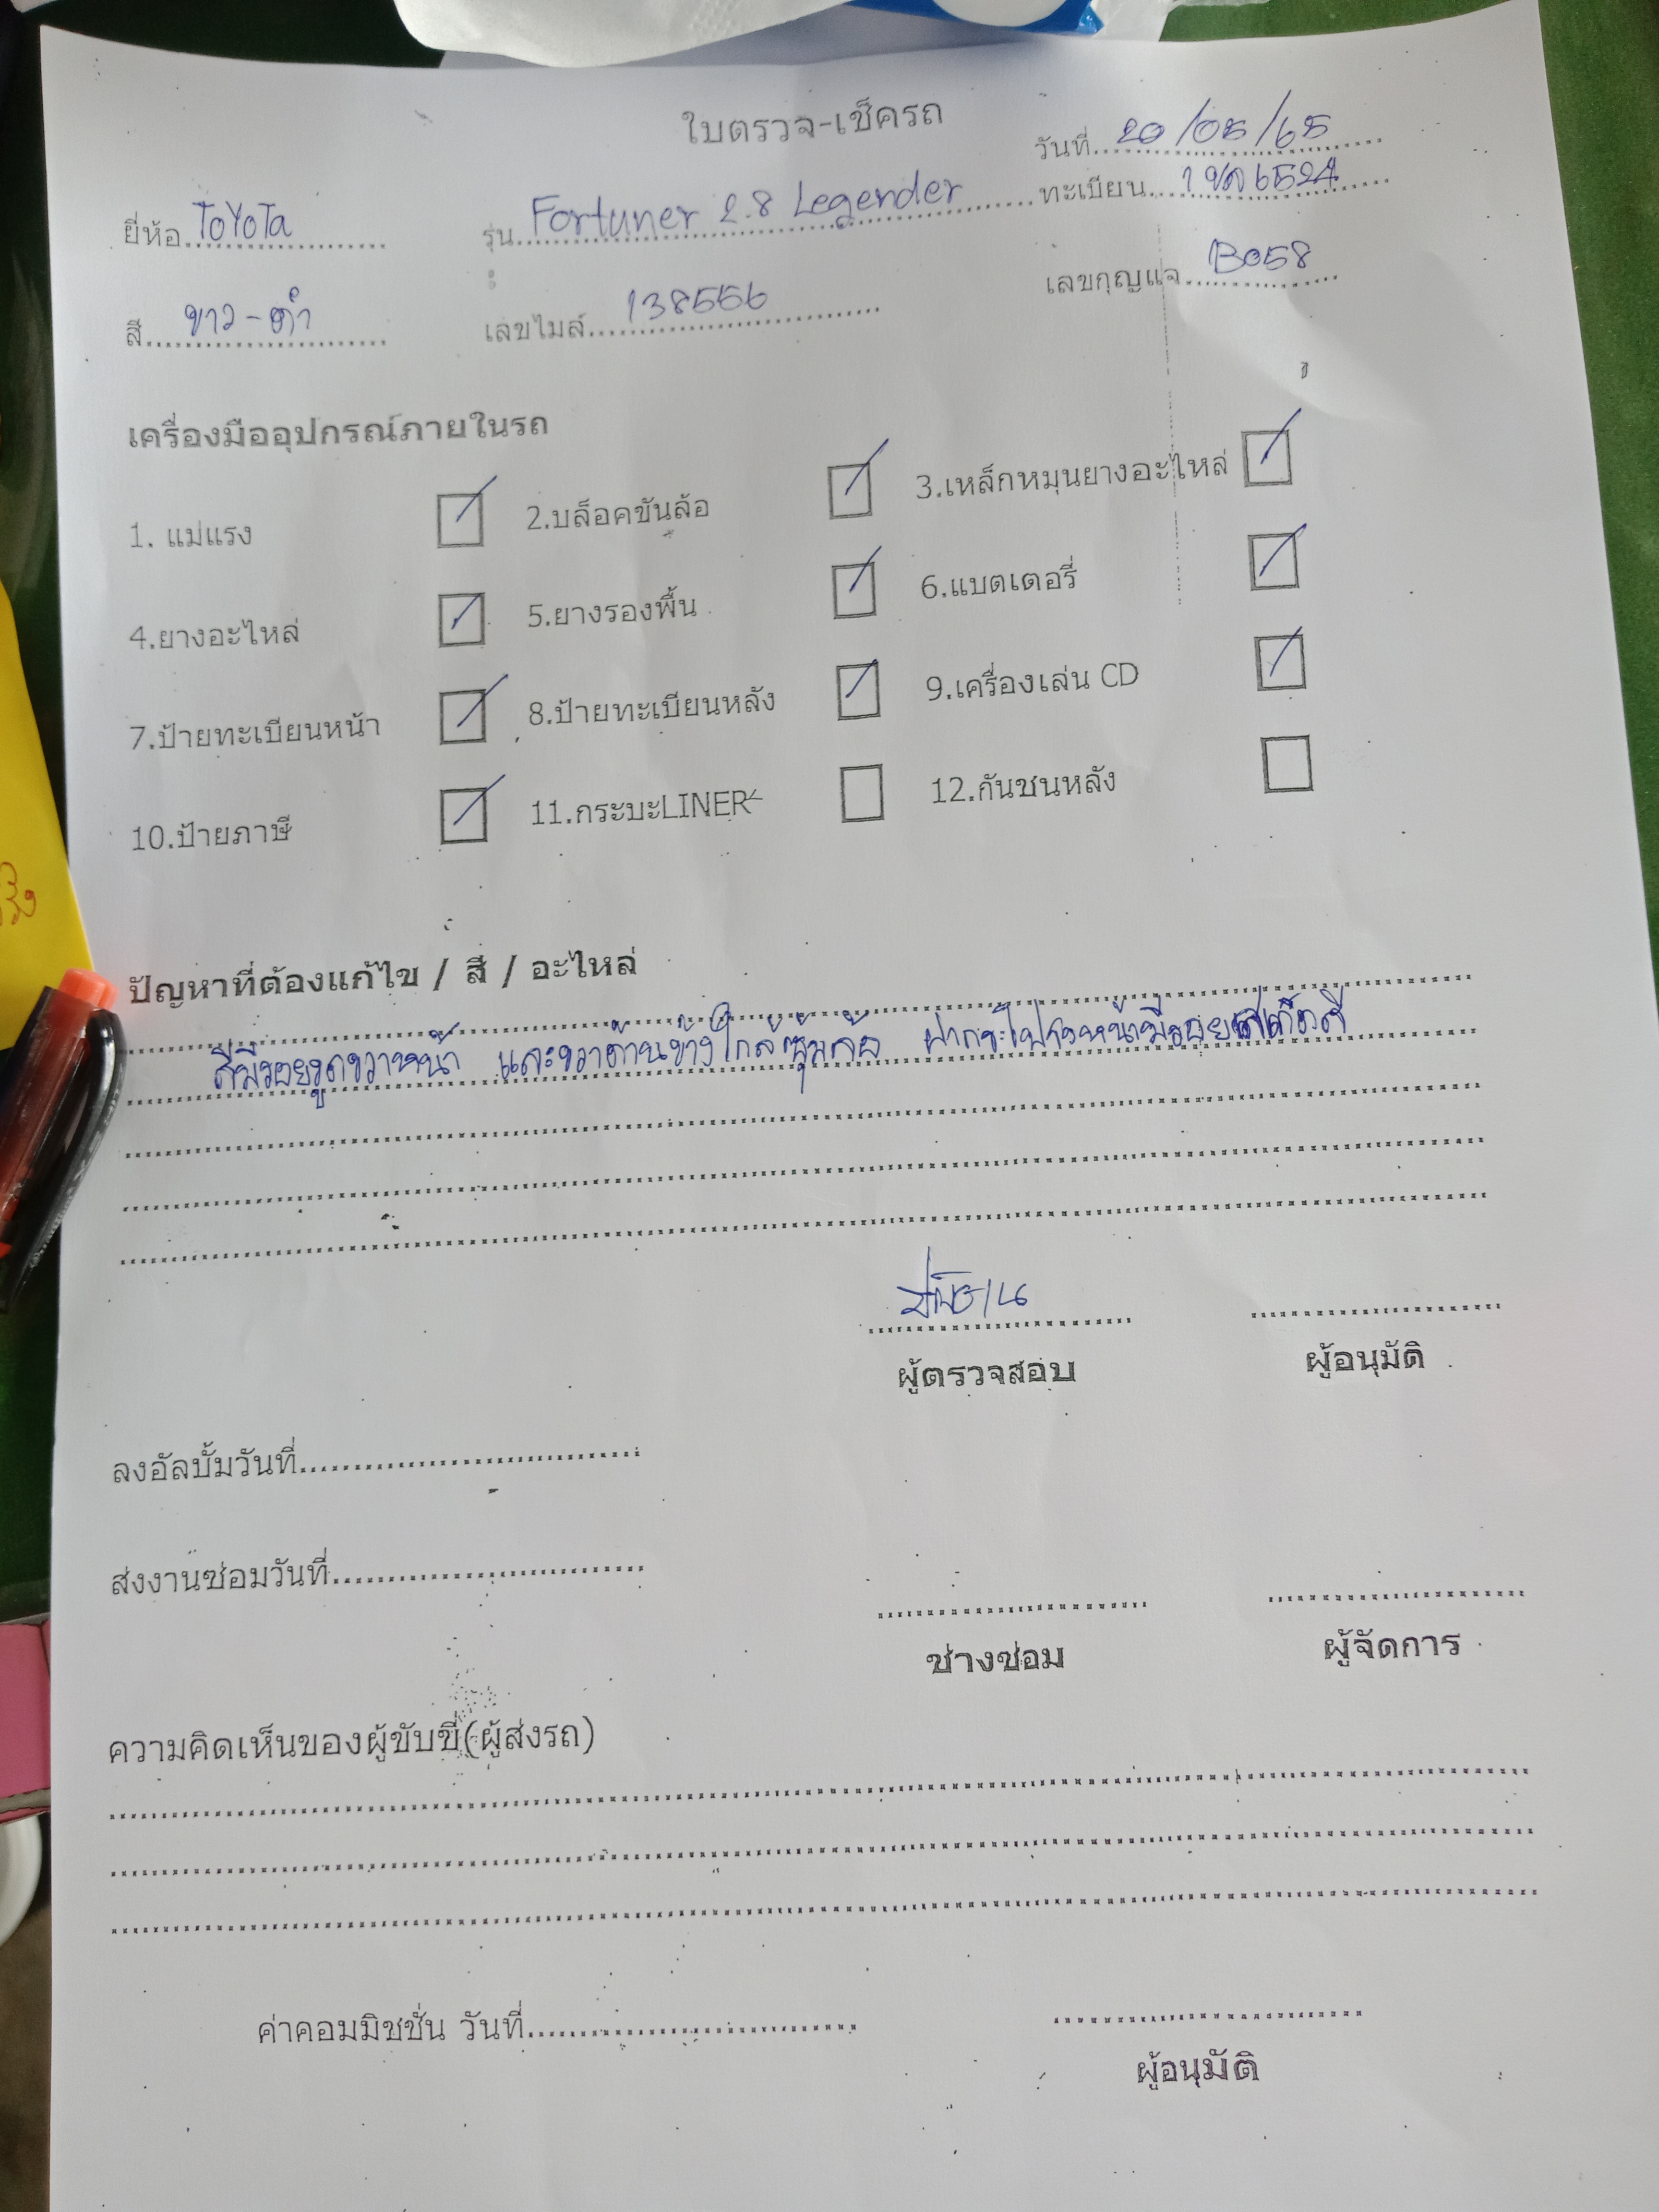 ใบตรวจ-เช็ครถ
วันที่ 20/05/65
ยี่ห้อ ToYoTa รุ่น Fortuner 2.8 Legender ทะเบียน 1 ขล 6524
สี ขาว-ดำ เลขไมล์ 138556 เลขกุญแจ B058
เครื่องมืออุปกรณ์ภายในรถ
1. แม่แรง 2.บล็อคขันล้อ 3.เหล็กหมุนยางอะไหล่
4.ยางอะไหล่ 5.ยางรองพื้น 6.แบตเตอรี่
7.ป้ายทะเบียนหน้า 8.ป้ายทะเบียนหลัง 9.เครื่องเล่น CD
10.ป้ายภาษี 11.กระบะLINER 12.กันชนหลัง
ปัญหาที่ต้องแก้ไข / สี / อะไหล่
สีมีรอยขูดขวาหน้า และขวาด้านข้างใกล้ซุ้มล้อ ฝากระโปรงหน้ามีรอยสะเก็ดสี
ผู้ตรวจสอบ ผู้อนุมัติ
ลงอัลบั้มวันที่
ส่งงานซ่อมวันที่
ช่างซ่อม ผู้จัดการ
ความคิดเห็นของผู้ขับขี่(ผู้ส่งรถ)
ค่าคอมมิชชั่น วันที่
ผู้อนุมัติ